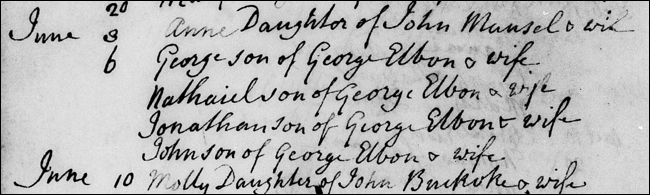 20
June 8 Anne Daughter of John Mansel & wife
6 George son of George Elbon & wife
Nathaiel son of George Elbon & wife
Jonathan son of George Elbon & wife
John son of George Elbon & wife
June 10 Molly Daughter of John & wife